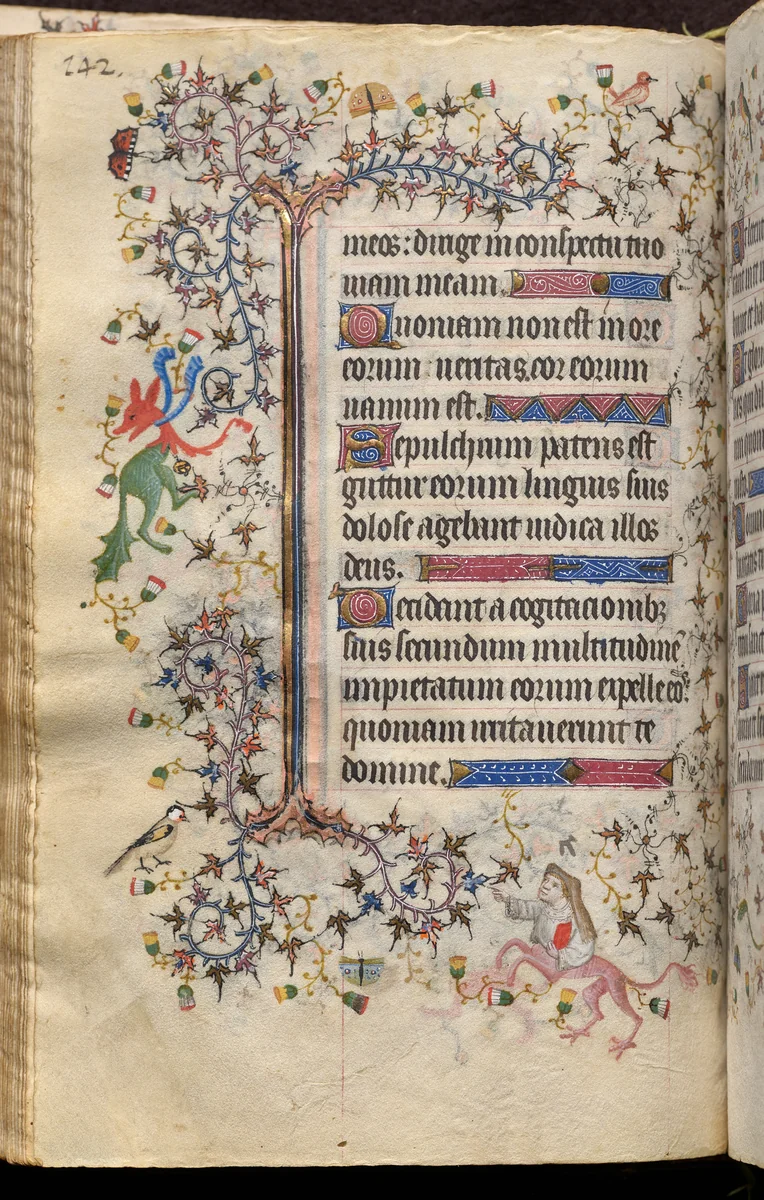 242.
meos: dirige in conspectu tuo
uiam meam.
Quoniam non est in ore
eorum ueritas. cor eorum
uanum est.
Sepulchrum patens est
guttur eorum linguis suis
dolose agebant iudica illos
deus.
Decidant a cogitacionibꝫ
suis secundum multitudinē
impietatum eorum expelle eoˢ
quoniam irritauerunt te
domine.